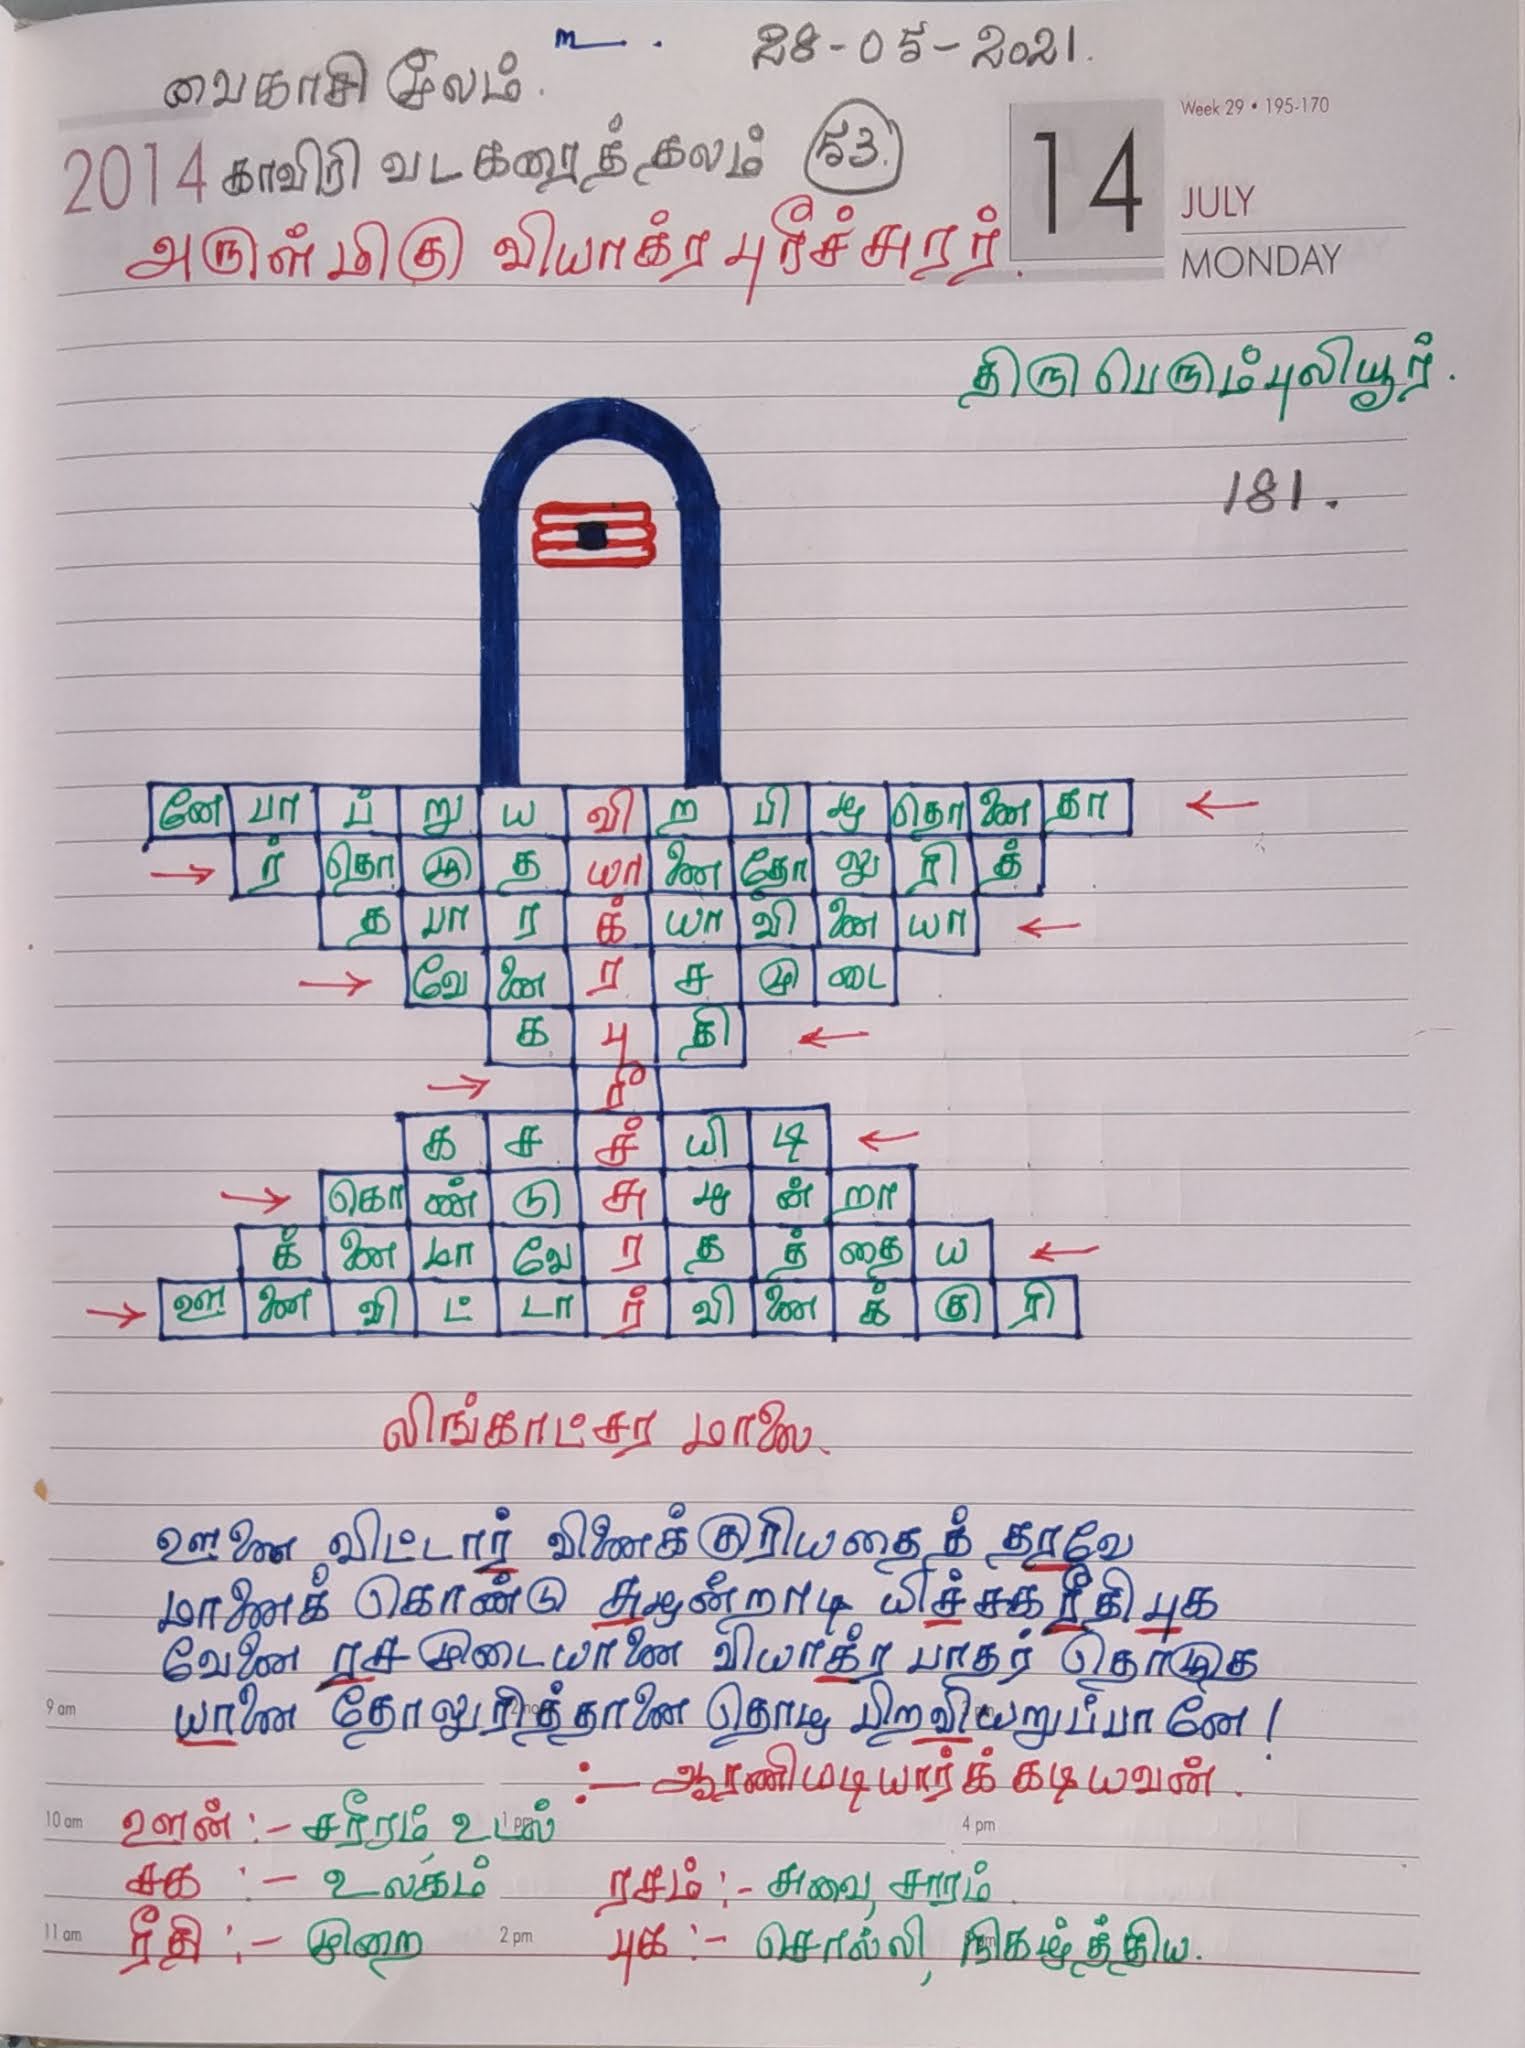 28-05-2021.
வைகாசி சேலம்.
Week 29 • 195-170
2014 காவிரி வடகரைத் தலம் 53.
14
JULY
MONDAY
அருள்மிகு வியாக்ரபுரீச்சுரர்.
திருபெரும்புலியூர்.
181.
னே பா ப் று ய வி ற பி ழ தொ னை தா ←
→ ர் தொ ழு த யா னை தோ லு ரி த்
த பா ர க் யா வி னை யா ←
→ வே னை ர ச மு டை
க பு தி ←
→ ரீ
க ச ச் யி டி ←
→ கொ ண் டு சு ழ ன் றா
க் னை மா வே ர த த் தை ய ←
→ ஊ னை வி ட் டா ர் வி னை க் கு ரி
லிங்காட்சர மாலை.
ஊனை விட்டார் வினைக்குரியதைத் தரவே
மானைக் கொண்டு சுழன்றாடி யிச்சகரீதிபுக
வேனை ரசமுடையானை வியாக்ர பாதர் தொழுத
யானை தோலுரித்தானை தொழ பிறவியறுப்பானே!
:- ஆரணிமடியார்க்கடியவன்.
9 am
10 am ஊன் :- சரீரம், உடல் 1 pm 4 pm
சக :- உலகம் ரசம் :- சுவை, சாரம்.
11 am ரீதி :- முறை 2 pm புக :- சொல்லி, நிகழ்த்திய.